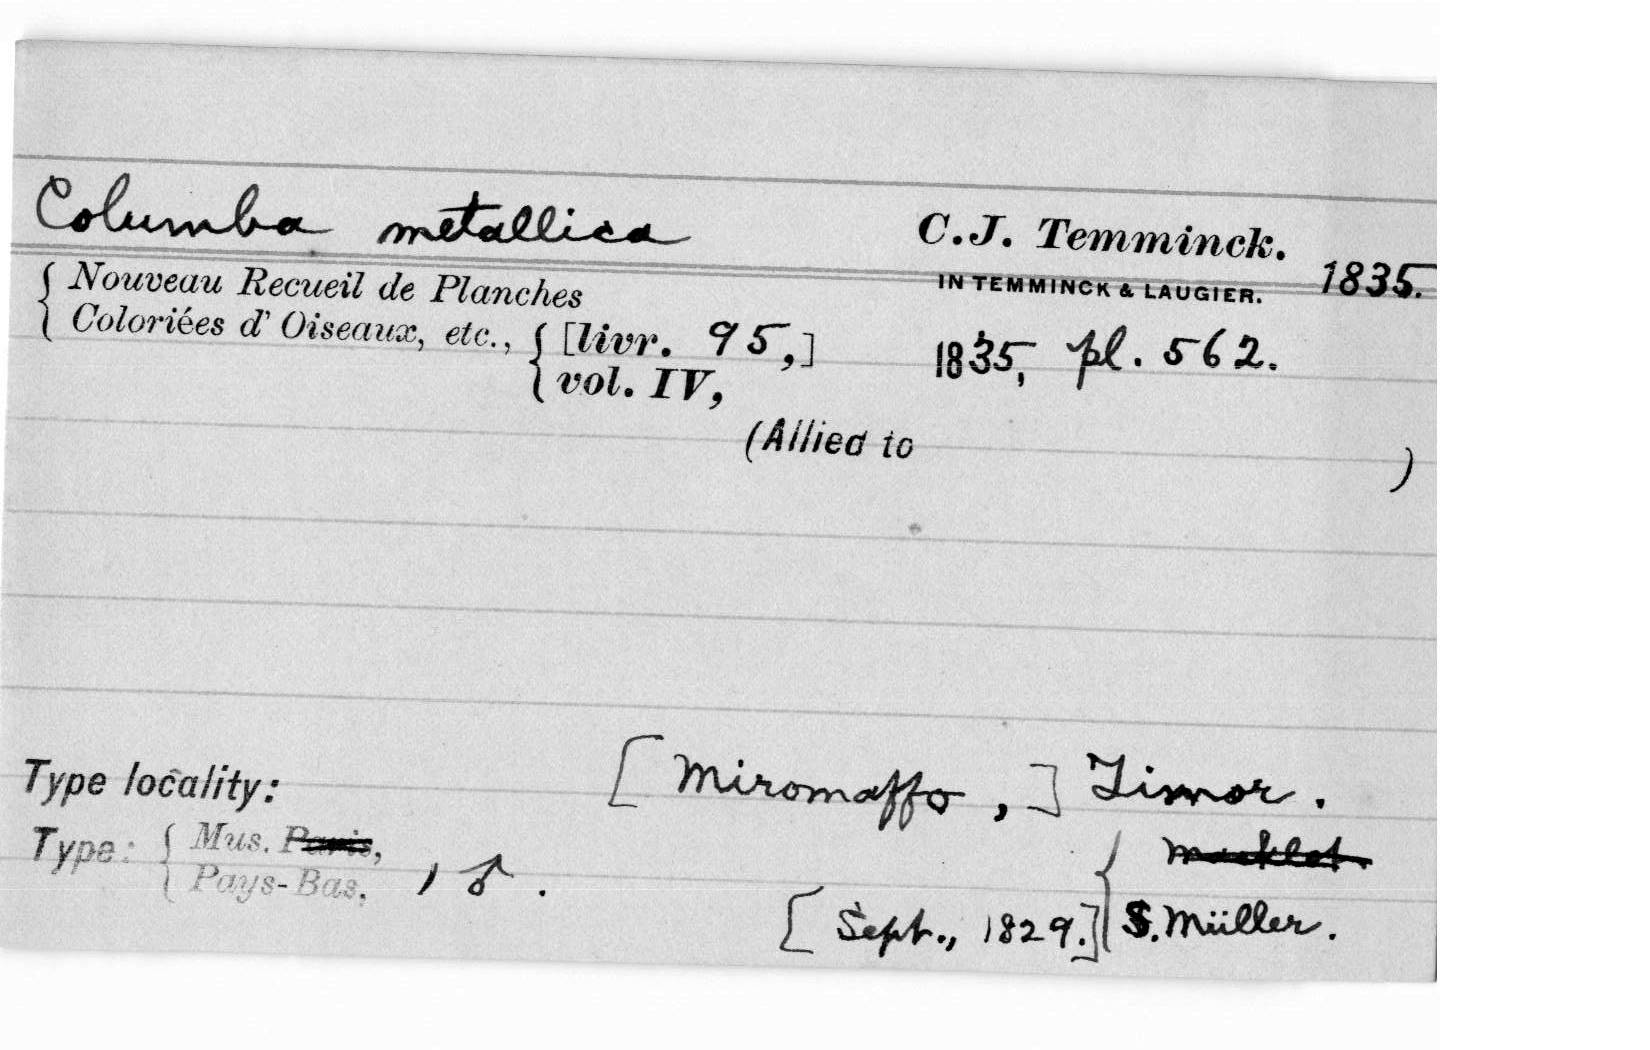 Columba metallica C.J. Temminck.
IN TEMMINCK & LAUGIER. 1835.
{ Nouveau Recueil de Planches
Coloriées d' Oiseaux, etc., { [livr. 95,] 1835, pl. 562.
vol. IV,
(Allied to )
Type locality: [Miromaffo,] Timor.
Type: { Mus. Paris, { Macklot.
Pays-Bas. , ♂.
[Sept., 1829.] S. Müller.